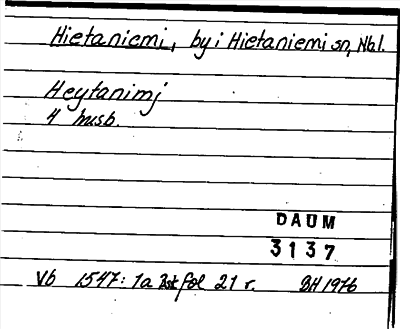 Hietaniemi, by i Hietaniemi sn, Nbl.
Heytanimj
4 husb.
DAUM
3137
Vb 1547: 1a fol 21 r. BH 1976